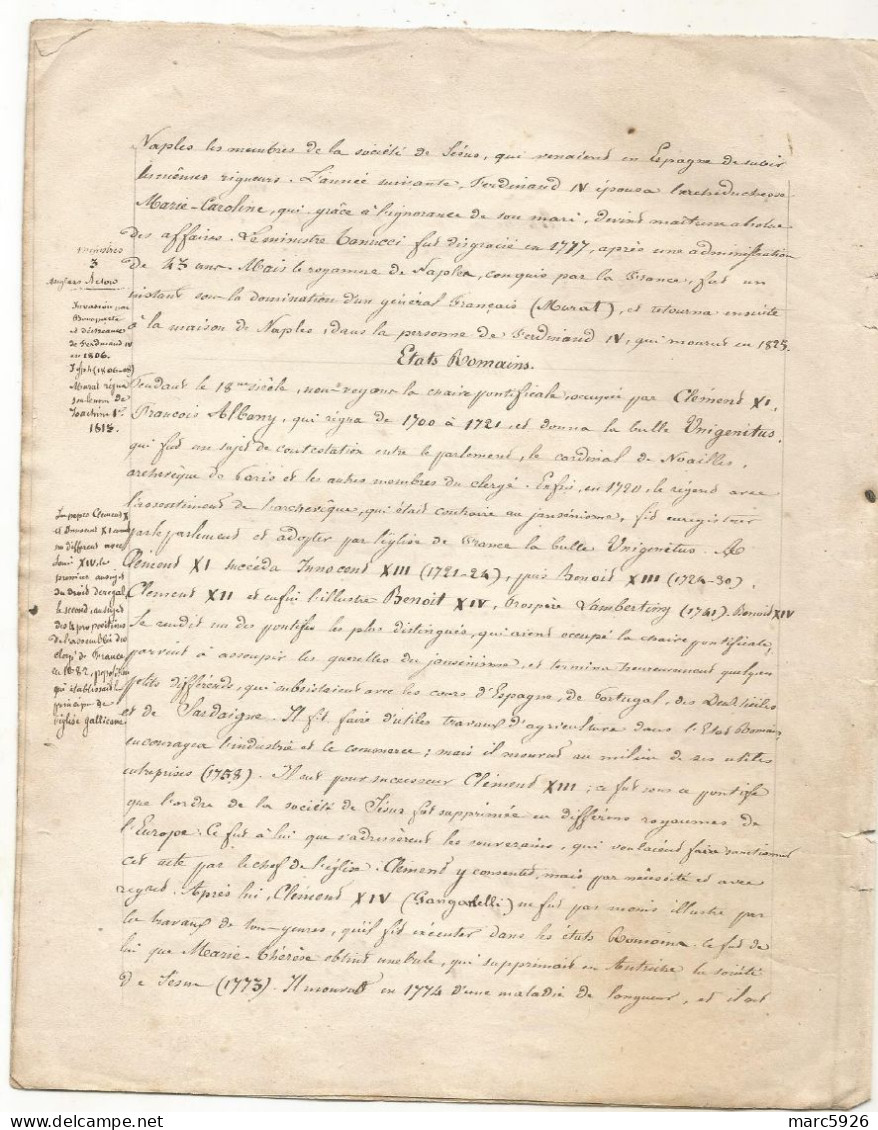 Naples les membres de la société de Jésus, qui venaient en Espagne de subir
les mêmes rigueurs. L'année suivante, Ferdinand IV épousa l'archiduchesse
Marie-Caroline, qui grâce à l'ignorance de son mari, devint maîtresse absolue
des affaires. Le ministre Tanucci fut disgracié en 1777, après une administration
de 43 ans. Mais le royaume de Naples, conquis par la France, fut un
instant sous la domination d'un général Français (Murat), et retourna ensuite
à la maison de Naples, dans la personne de Ferdinand IV, qui mourut en 1825.
ministres
3
Acton
Invasion par
Bonaparte
et déchéance
de Ferdinand IV
en 1806.
Joseph (1806
Murat règne
sous le nom de
Joachim 1er
1815.
Etats Romains.
Pendant le 18me siècle, nous voyons la chaire pontificale, occupée par Clément XI,
François Albany, qui régna de 1700 à 1721, et donna la bulle Unigenitus,
qui fut un sujet de contestation entre le parlement, le cardinal de Noailles,
archevêque de Paris et les autres membres du clergé. Enfin, en 1720, le régent avec
l'assentiment de l'archevêque, qui était contraire au jansénisme, fit enregistrer
par le parlement et adopter par l'église de France la bulle Unigenitus. A
Clément XI succéda Innocent XIII (1721-24), puis Benoit XIII (1724-30).
Clément XII et enfin l'illustre Benoit XIV, Prospère Lambertiny (1741). Benoit XIV
Se rendit un des pontifes les plus distingués, qui aient occupé la chaire pontificale,
parvint à assoupir les querelles du jansénisme, et termina heureusement quelques
petits différends, qui subsistaient avec les cours d'Espagne, de Portugal, des Deux Siciles
et de Sardaigne. Il fit faire d'utiles travaux d'agriculture dans l'Etat Romain,
encouragea l'industrie et le commerce; mais il mourut au milieu de ses utiles
entreprises (1758). Il eut pour successeur Clément XIII; ce fut sous ce pontife
que l'ordre de la société de Jésus fut supprimée en différens royaumes de
l'Europe: Ce fut à lui que s'adressèrent les souverains, qui voulaient faire sanctionner
cet acte par le chef de l'église. Clément y consentit, mais par nécessité et avec
regret. Après lui, Clément XIV (Ganganelli) ne fut pas moins illustre par
les travaux de tous genres, qu'il fit exécuter dans les états Romains. Ce fut de
lui que Marie-Thérèse obtint une bulle, qui supprimait en Autriche la société
de Jésus (1773). Il mourut en 1774 d'une maladie de langueur, et il eut
Les papes Clément X
et Innocent XI eurent
un différent avec
Louis XIV, le
premier au sujet
du droit de régal
le second, au sujet
des 4 propositions
de l'assemblée du
clergé de France
en 1682, propositions
qui établissaient
principe de
l'église gallicane
delcampe.net
marc5926